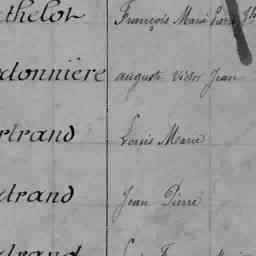 thelot François Marie
donnière auguste Victor Jean
rtrand Louis Marie
trand Jean Pierre
trand